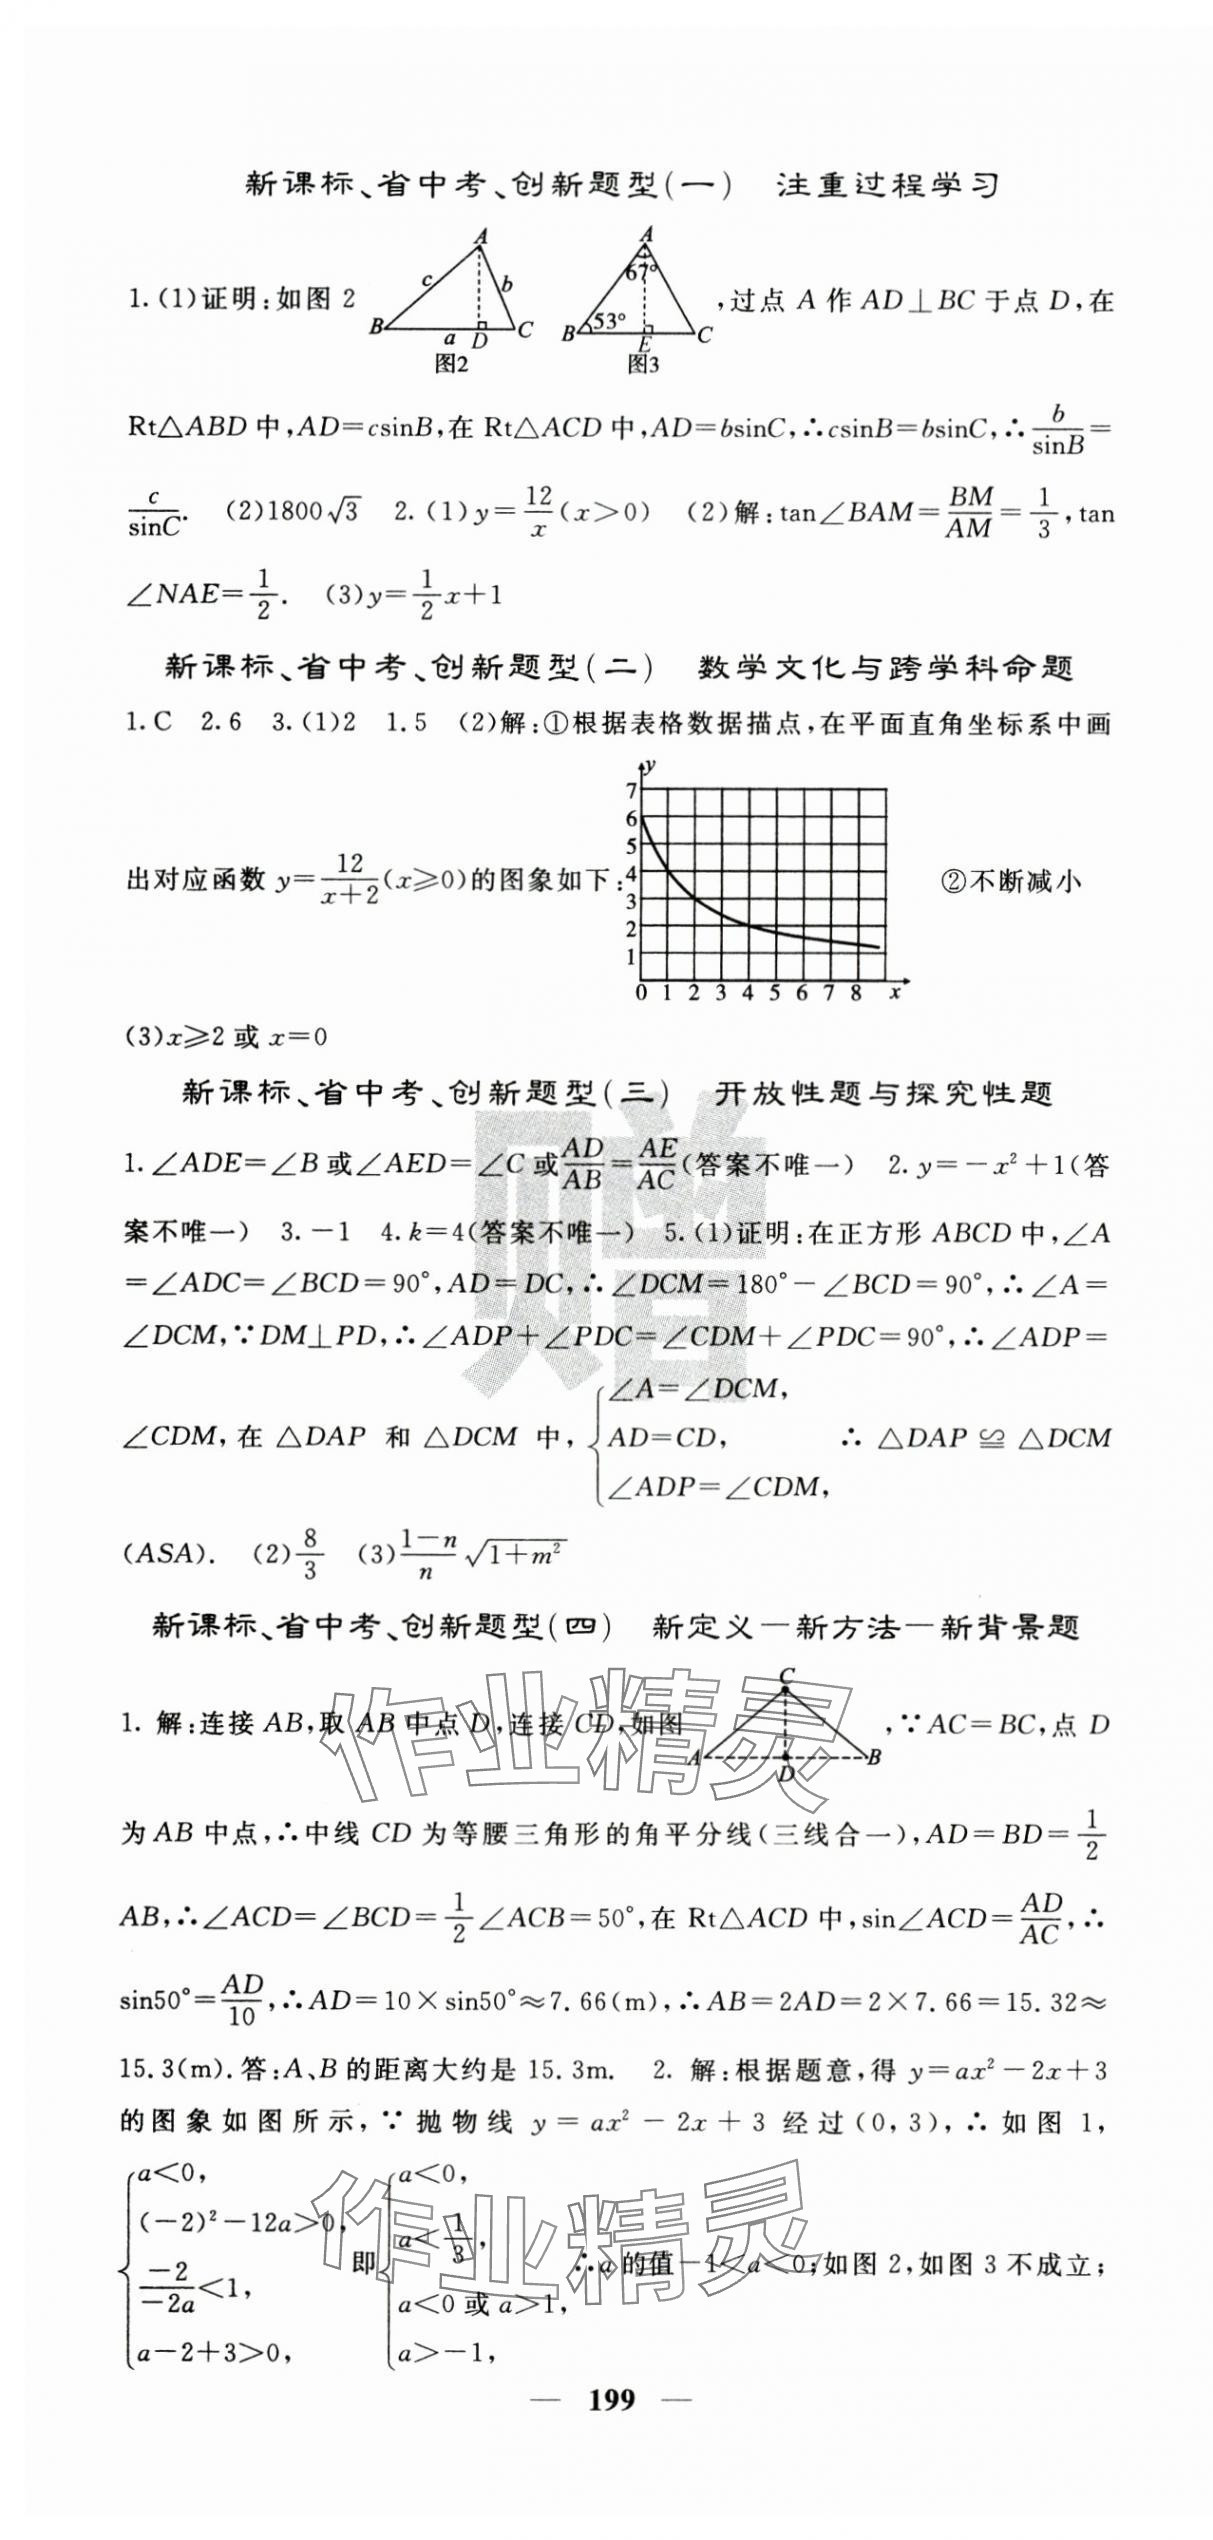 新课标、省中考、创新题型(一) 注重过程学习
1.(1)证明:如图 2
A
c
b
B
a
D
C
图2
A
67°
B
53°
E
C
图3
,过点 A 作 AD⊥BC 于点 D,在
Rt△ABD 中,AD=csinB,在 Rt△ACD 中,AD=bsinC,∴csinB=bsinC,∴b/sinB=
c/sinC. (2)1800√3 2.(1)y=12/x(x>0) (2)解:tan∠BAM=BM/AM=1/3,tan
∠NAE=1/2. (3)y=1/2x+1
新课标、省中考、创新题型(二) 数学文化与跨学科命题
1.C 2.6 3.(1)2 1.5 (2)解:①根据表格数据描点,在平面直角坐标系中画
出对应函数 y=12/(x+2)(x≥0)的图象如下:
y
7
6
5
4
3
2
1
0 1 2 3 4 5 6 7 8 x
②不断减小
(3)x≥2 或 x=0
新课标、省中考、创新题型(三) 开放性题与探究性题
1.∠ADE=∠B 或∠AED=∠C 或AD/AB=AE/AC(答案不唯一) 2.y=-x²+1(答
案不唯一) 3.-1 4.k=4(答案不唯一) 5.(1)证明:在正方形 ABCD 中,∠A
=∠ADC=∠BCD=90°,AD=DC,∴∠DCM=180°-∠BCD=90°,∴∠A=
∠DCM,∵DM⊥PD,∴∠ADP+∠PDC=∠CDM+∠PDC=90°,∴∠ADP=
∠CDM,在 △DAP 和 △DCM 中,{∠A=∠DCM, AD=CD, ∠ADP=∠CDM, ∴ △DAP ≌ △DCM
(ASA). (2)8/3 (3)(1-n)/n√(1+m²)
赠
新课标、省中考、创新题型(四) 新定义一新方法一新背景题
1. 解:连接 AB,取 AB 中点 D,连接 CD,如图
C
A
D
B
,∵AC=BC,点 D
为 AB 中点,∴中线 CD 为等腰三角形的角平分线(三线合一),AD=BD=1/2
AB,∴∠ACD=∠BCD=1/2∠ACB=50°,在 Rt△ACD 中,sin∠ACD=AD/AC,∴
sin50°=AD/10,∴AD=10×sin50°≈7.66(m),∴AB=2AD=2×7.66=15.32≈
15.3(m).答:A、B 的距离大约是 15.3m. 2. 解:根据题意,得 y=ax²-2x+3
的图象如图所示,∵抛物线 y=ax²-2x+3 经过(0,3),∴如图 1,
{a<0, (-2)²-12a>0, -2/-2a<1, a-2+3>0, 即{a<0, a<1/3, a<0 或 a>1, a>-1, ∴a 的值-1<a<0;如图 2,如图 3 不成立;
作业精灵
作业精灵
— 199 —